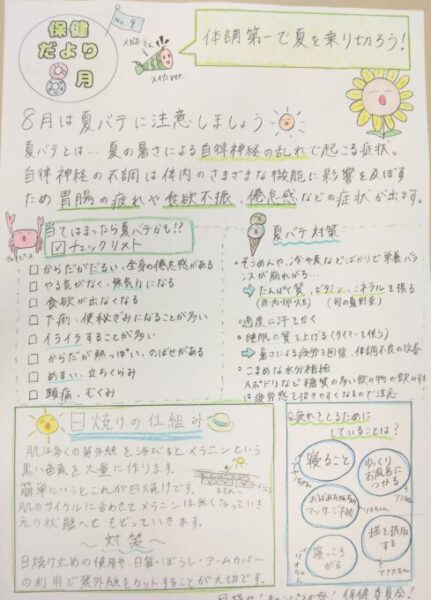 No.9
保健
だより
8月
スイカver.
体調第一で夏を乗り切ろう!
8月は夏バテに注意しましょう
夏バテとは…夏の暑さによる自律神経の乱れで起こる症状。
自律神経の不調は体内のさまざまな機能に影響を及ぼす
ため胃腸の疲れや食欲不振、倦怠感などの症状が出ます。
当てはまったら夏バテかも!?
チェックリスト
□ からだがだるい、全身の倦怠感がある
□ やる気がなく、無気力になる
□ 食欲が出なくなる
□ 下痢・便秘ぎみになることが多い
□ イライラすることが多い
□ からだが熱っぽい、のぼせがある
□ めまい、立ちくらみ
□ 頭痛、むくみ
夏バテ対策
・そうめんや、冷や麦などばかりで栄養バラ
ンスが崩れがち…
⇒たんぱく質、ビタミン、ミネラルを摂る
(魚・肉・卵・大豆) (旬の夏野菜)
・適度に汗とかく
・睡眠の質を上げる(タイマーを使う)
⇒暑さによる疲労を回復、体調不良の改善
・こまめな水分補給
スポドリなど糖質の多い飲み物の飲み
は疲労感を招きやすくなるので注意
日焼けの仕組み
肌は多くの紫外線を浴びるとメラニンという
黒い色素を大量に作ります。
簡単にいうとこれが日焼けです。
肌のサイクルに合わせてメラニンは無くなっていき
元の状態へともどっていきます。
～対策～
日焼け止めの使用や、日傘・ぼうし・アームカバー
の利用で紫外線をカットすることが大切です。
Q.疲れてとるために
していることは?
寝ること
ゆっくり
お風呂に
つかる
マッサージ
寝っころ
がる
猫を
する
保健委員会!